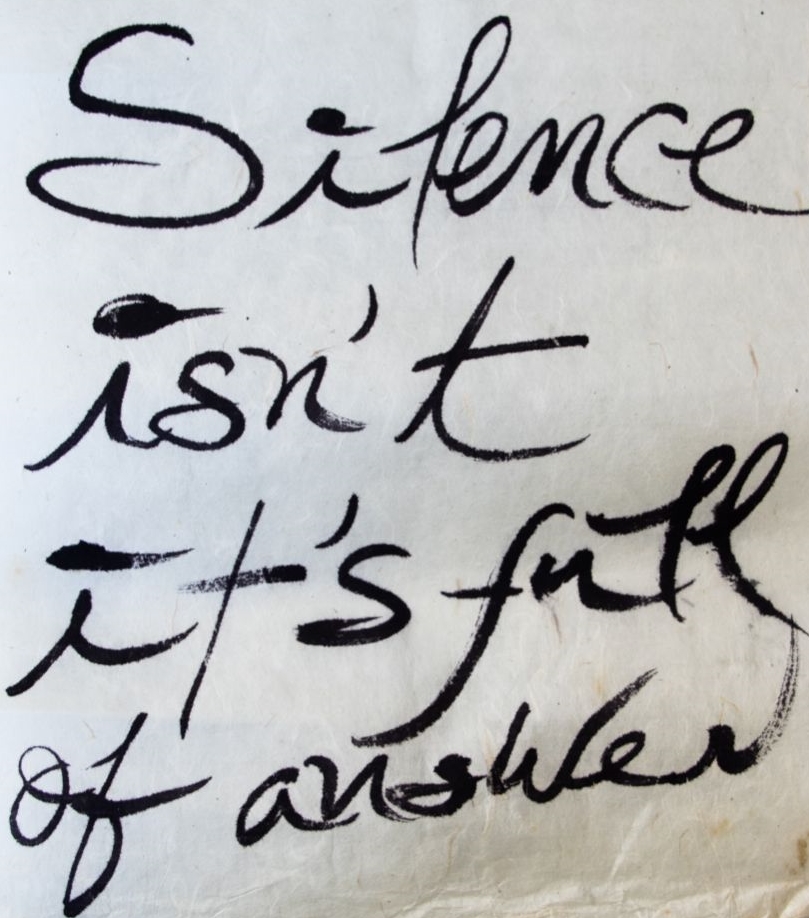 Silence
isn't
it's full
of answer